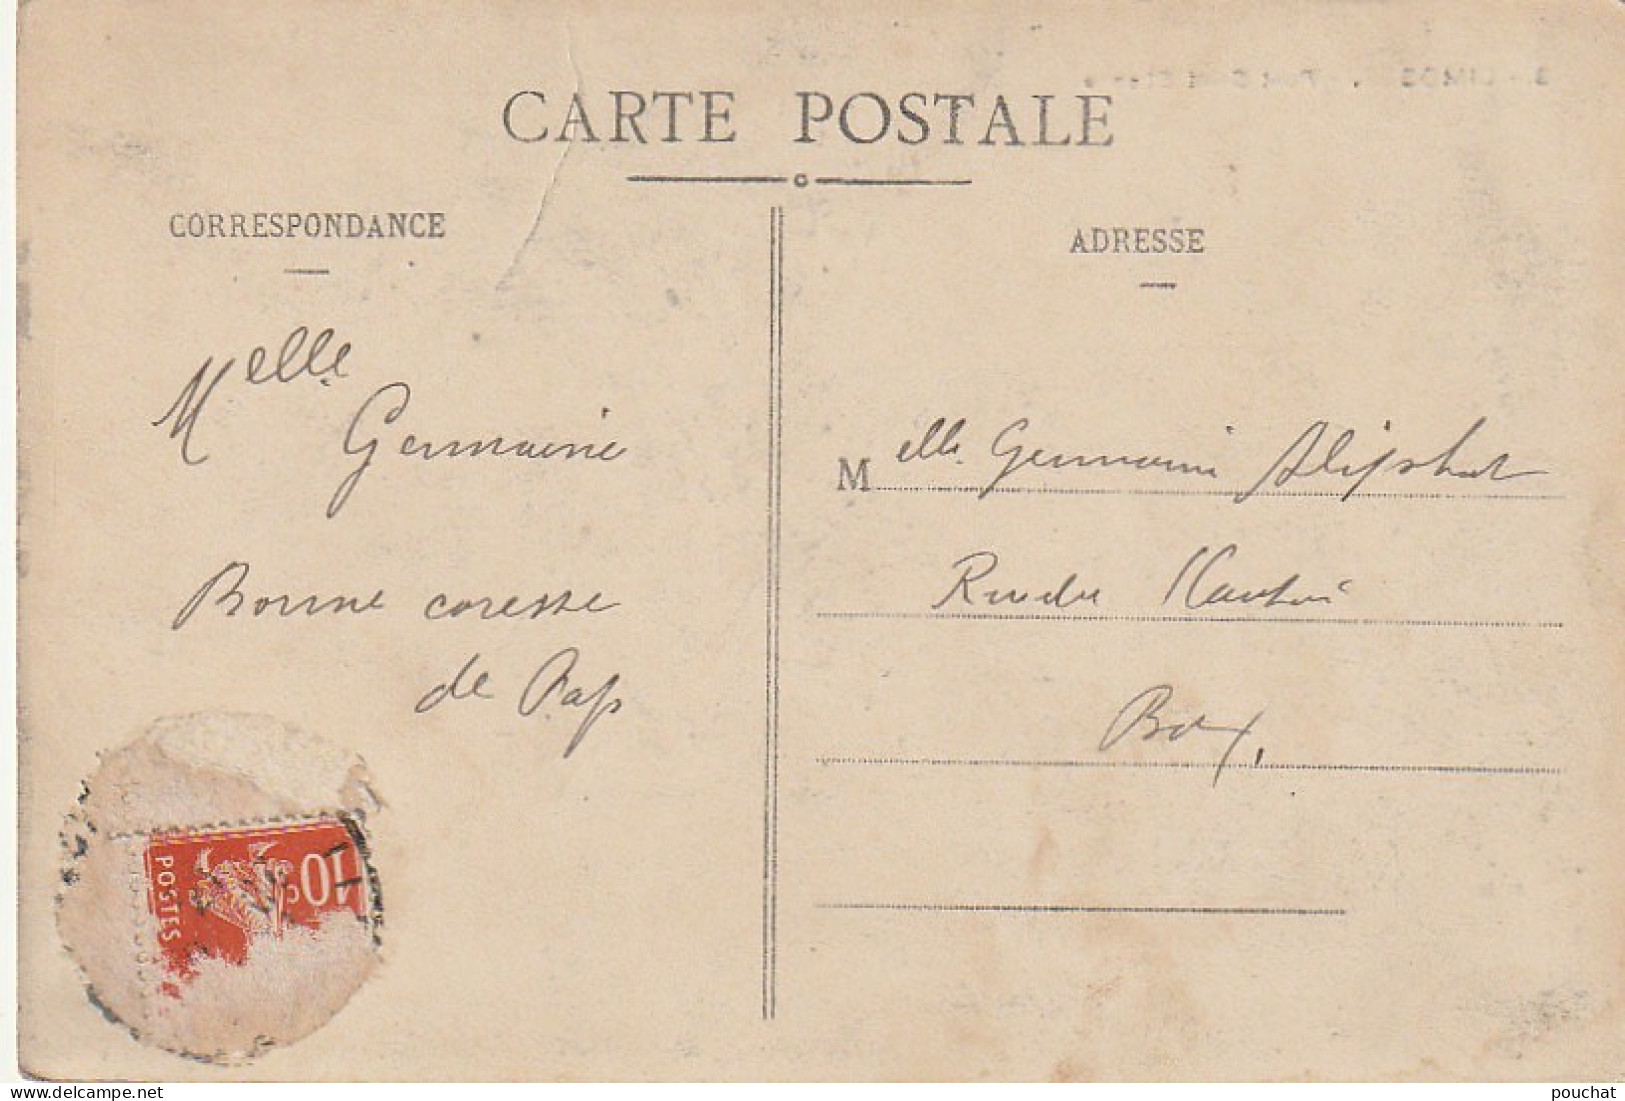 CARTE POSTALE
CORRESPONDANCE
Melle
Germaine
Bonne caresse
de Pap
10c
POSTES
ADRESSE
Melle Germaine
Bdx,
www.delcampe.net
pouchat